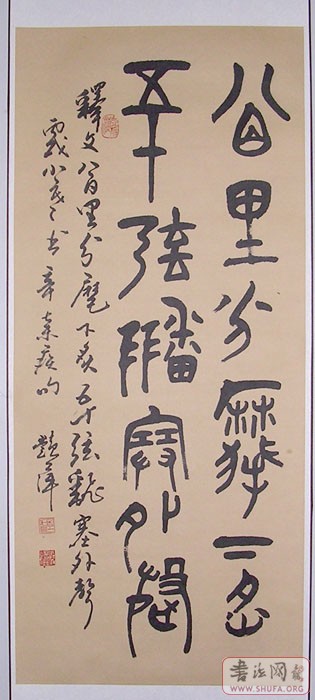 八百里分麾下炙
五十弦翻塞外聲
釋文八百里分麾下炙五十弦翻塞外聲
辛棄疾句
书法网
WWW.SHUFA.ORG